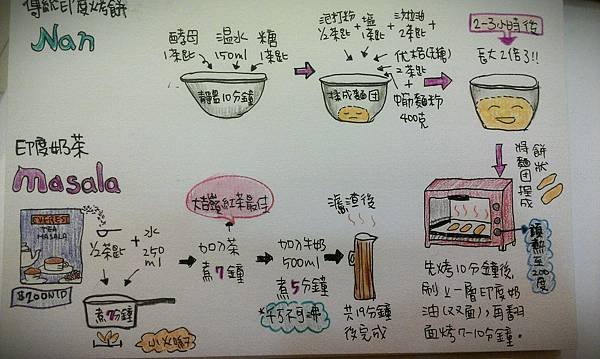 傳統印度烤餅
Nan
酵母
1茶匙
温水
150ml
糖
1茶匙
靜置10分鐘
泡打粉
½茶匙
+
塩
1茶匙
+
沙拉油
2茶匙
优格(无糖)
2茶匙
+
中筋麵粉
400克
揉成麵团
2-3小時後
長大2倍了!!
將麵团捏成
餅狀
預熱至200度
先烤10分鐘後,
刷上一層印度奶
油(双面),再翻
面烤7-10分鐘。
印度奶茶
masala
EVEREST
TEA
MASALA
$200NTD
½茶匙
+
水
250
ml
煮7分鐘
小火哦!
大吉嶺紅茶最佳
加入茶
煮7分鐘
加入牛奶
500ml
煮5分鐘
*千万不可沸
濾渣後
共19分鐘
後完成